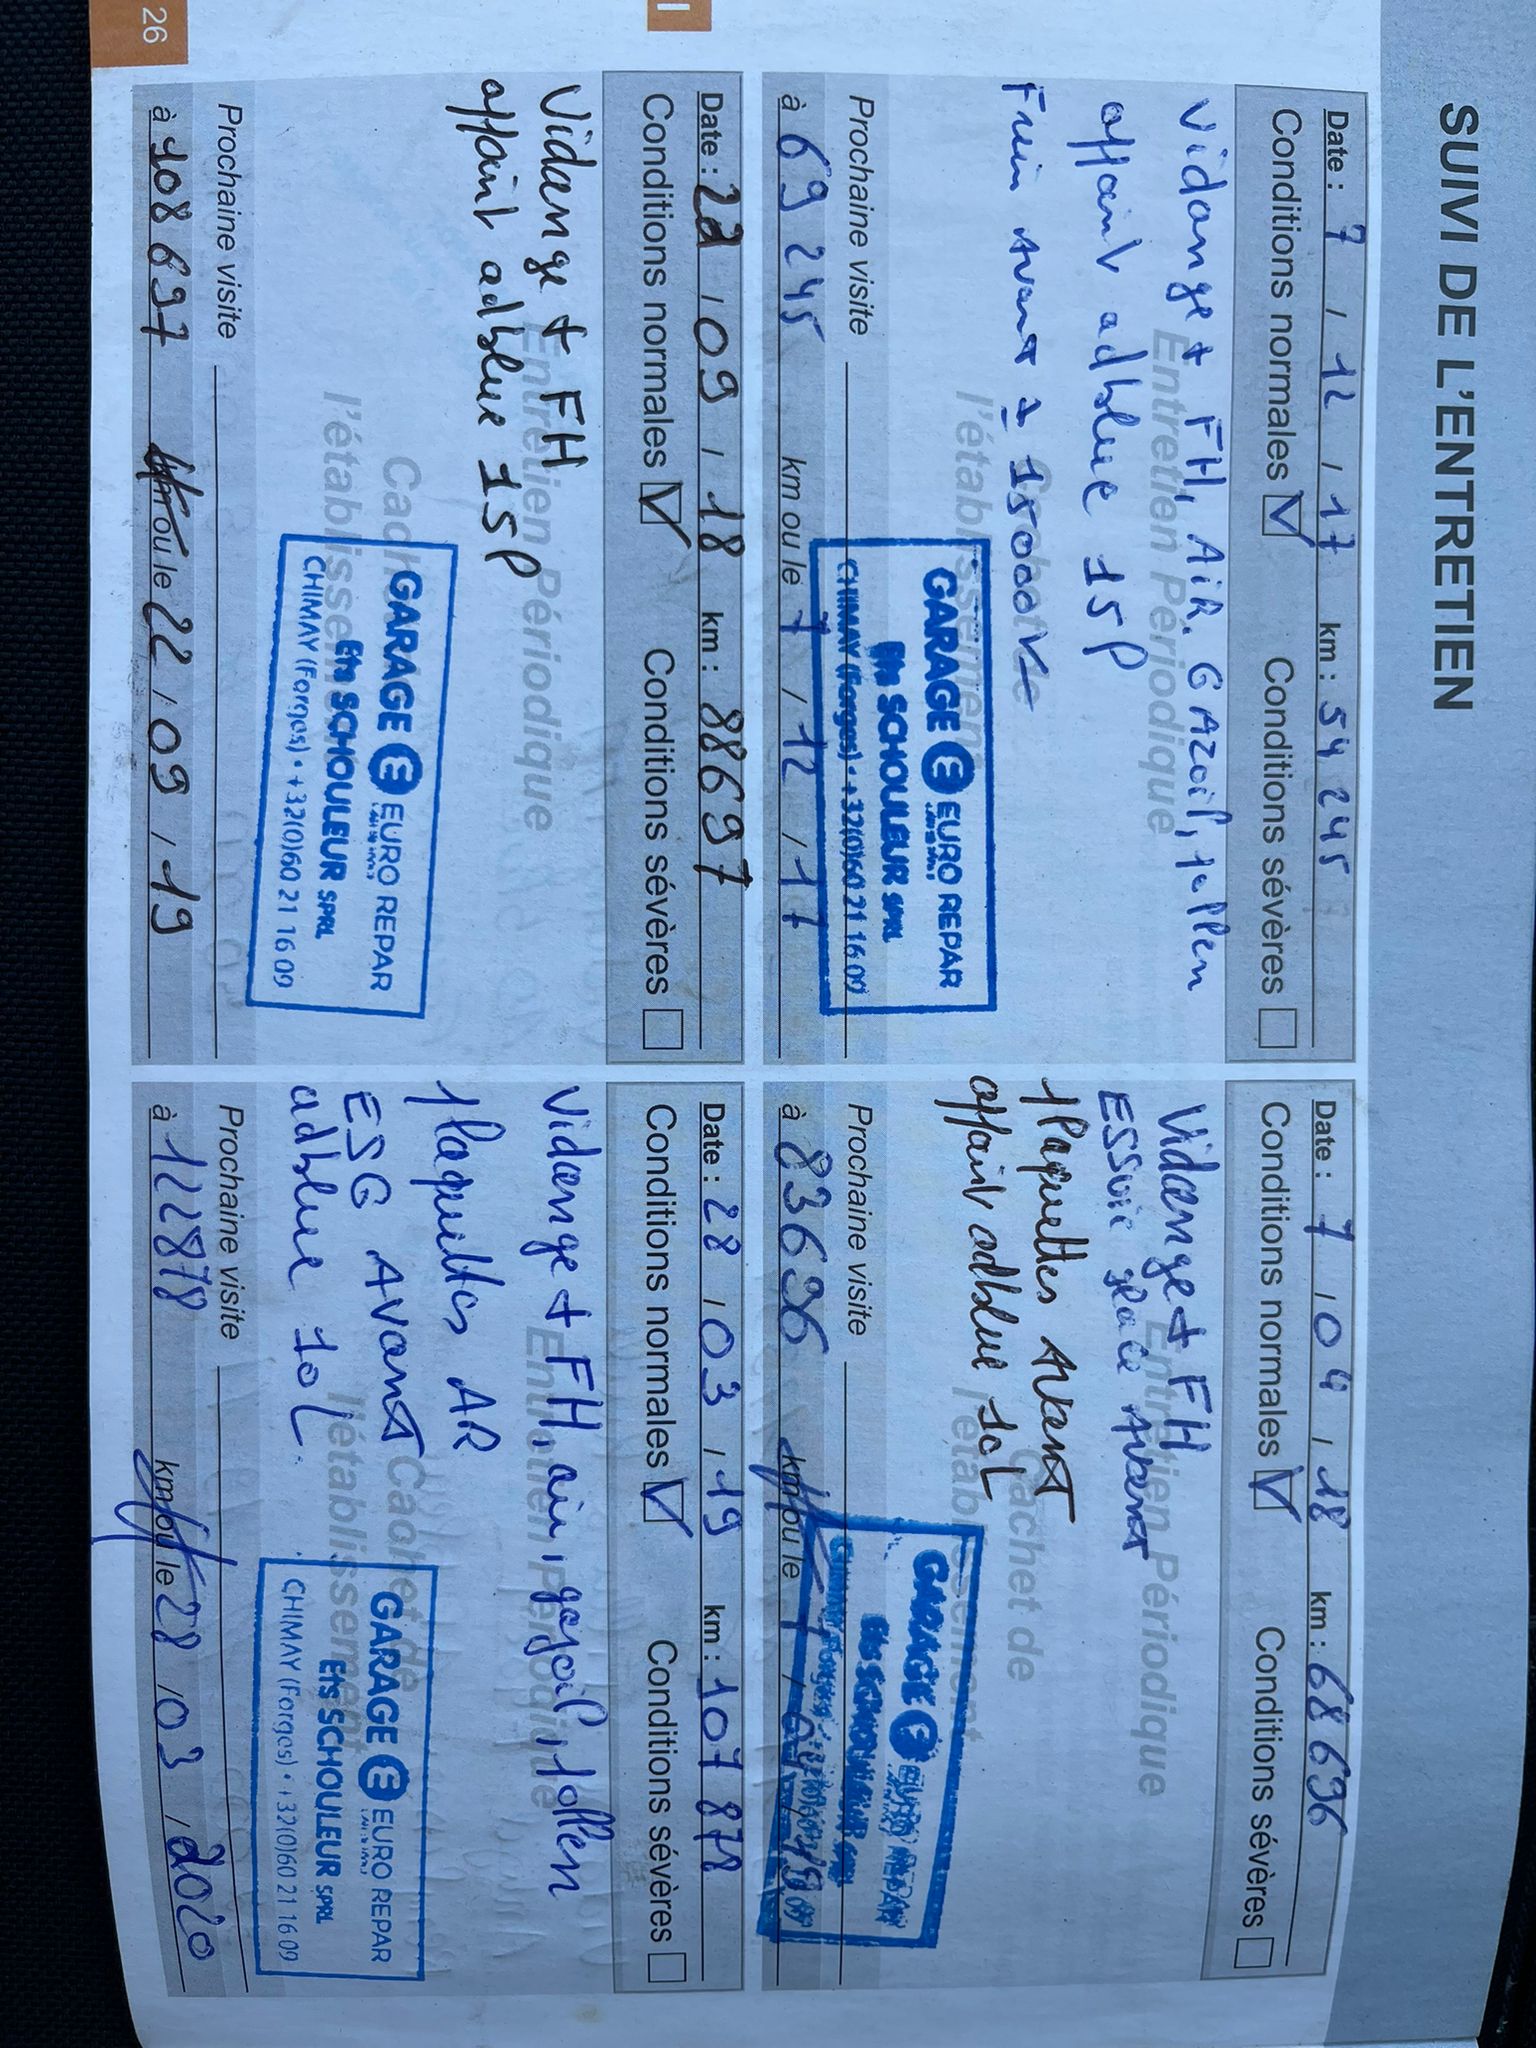 SUIVI DE L'ENTRETIEN
Date : 7 / 12 / 17 km : 54 245
Conditions normales Conditions sévères
Entretien Périodique
Vidange + FH, AiR. GAZoil, pollen
appoint adblue 15l
Frein Avant ± 15000
GARAGE EURO REPAR
Ets SCHOULEUR SPRL
CHIMAY (Forges) • +32(0)60 21 16 09
Prochaine visite
à 69 245 km ou le 7 / 12 / 17
Date : 7 / 04 / 18 km : 68 696
Conditions normales Conditions sévères
Entretien Périodique
Vidange + FH
ESSuie glace Avant
Plaquettes AVANT
appoint adblue 10L
Cachet de
l'établissement
GARAGE EURO REPAR
Ets SCHOULEUR SPRL
Prochaine visite
à 83696 km ou le 7 /
Date : 22 / 09 / 18 km : 88697
Conditions normales Conditions sévères
Entretien Périodique
Vidange + FH
appoint adblue 15l
Cachet de
l'établissement
GARAGE EURO REPAR
Ets SCHOULEUR SPRL
CHIMAY (Forges) • +32(0)60 21 16 09
Prochaine visite
à 108 697 km ou le 22 / 09 / 19
Date : 28 / 03 / 19 km : 107 878
Conditions normales Conditions sévères
Entretien Périodique
Vidange + FH, air, gazoil, pollen
Plaquettes AR
ESG AVANT
adblue 10L
Cachet de
l'établissement
GARAGE EURO REPAR
Ets SCHOULEUR SPRL
CHIMAY (Forges) • +32(0)60 21 16 09
Prochaine visite
à 122878 km ou le 28 / 03 / 2020
26